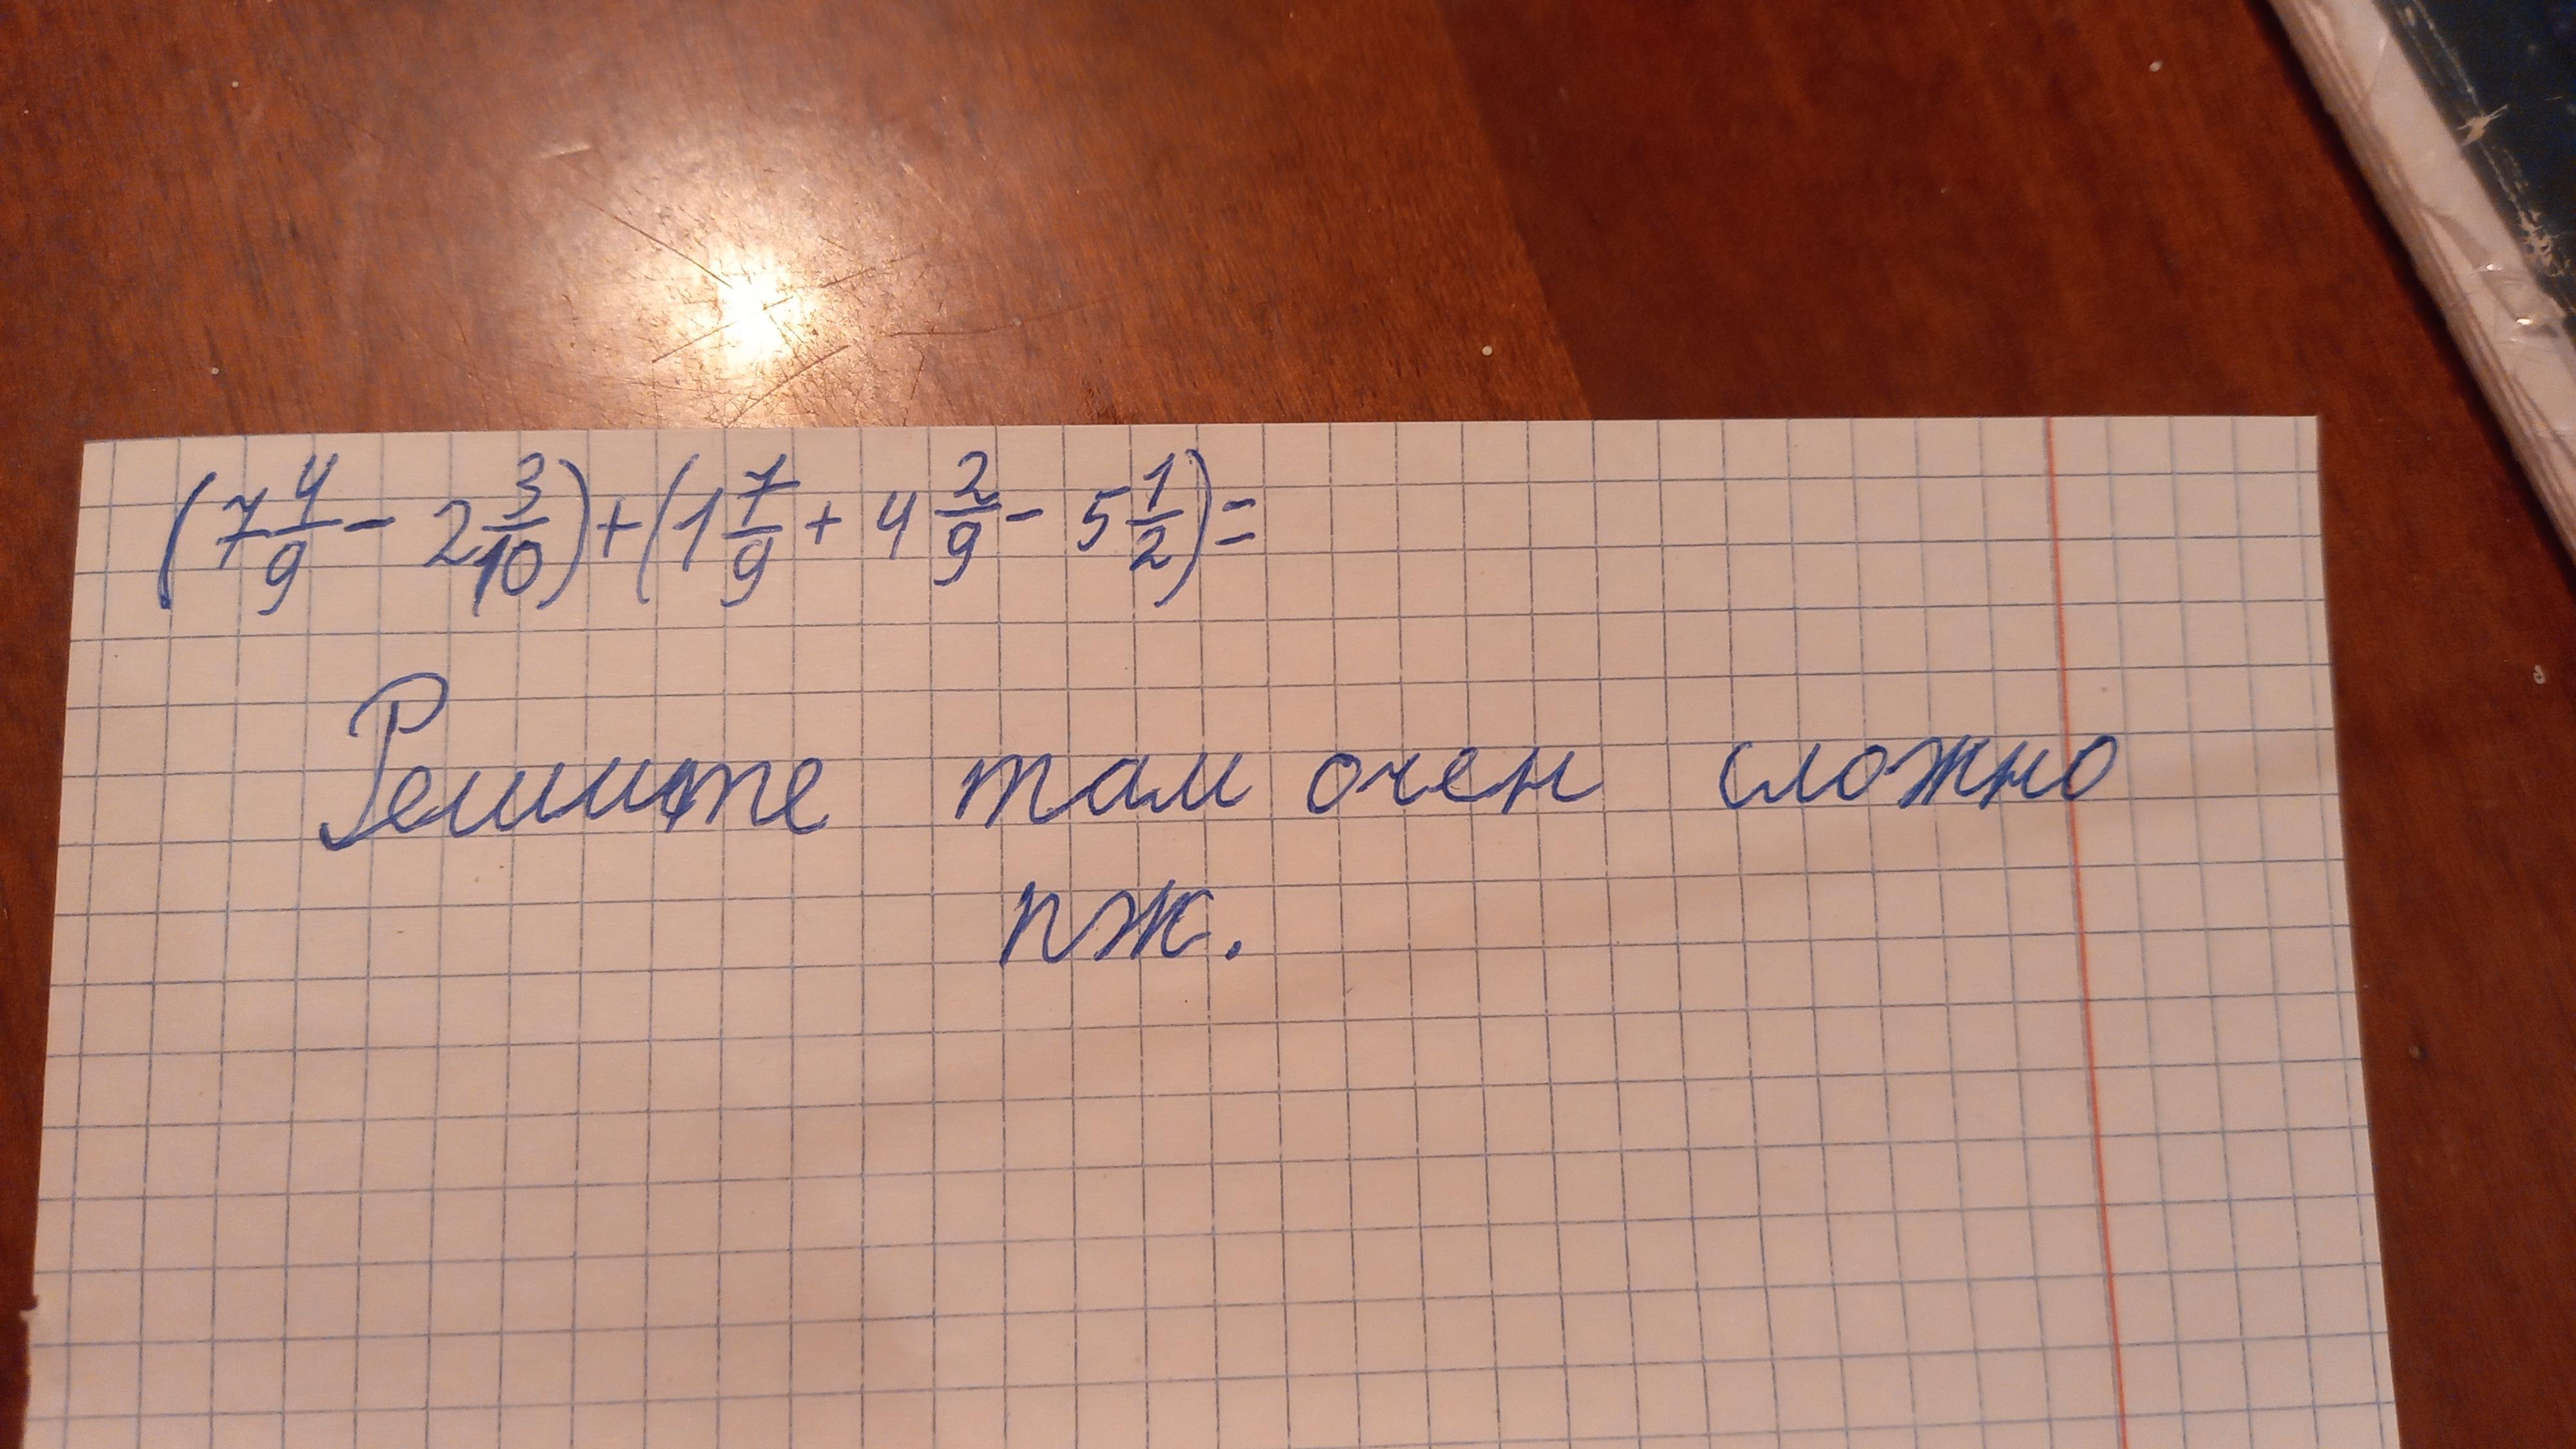 (7 4/9 - 2 3/10) + (1 7/9 + 4 2/9 - 5 1/2) =
Решите там очен сложно
пж.